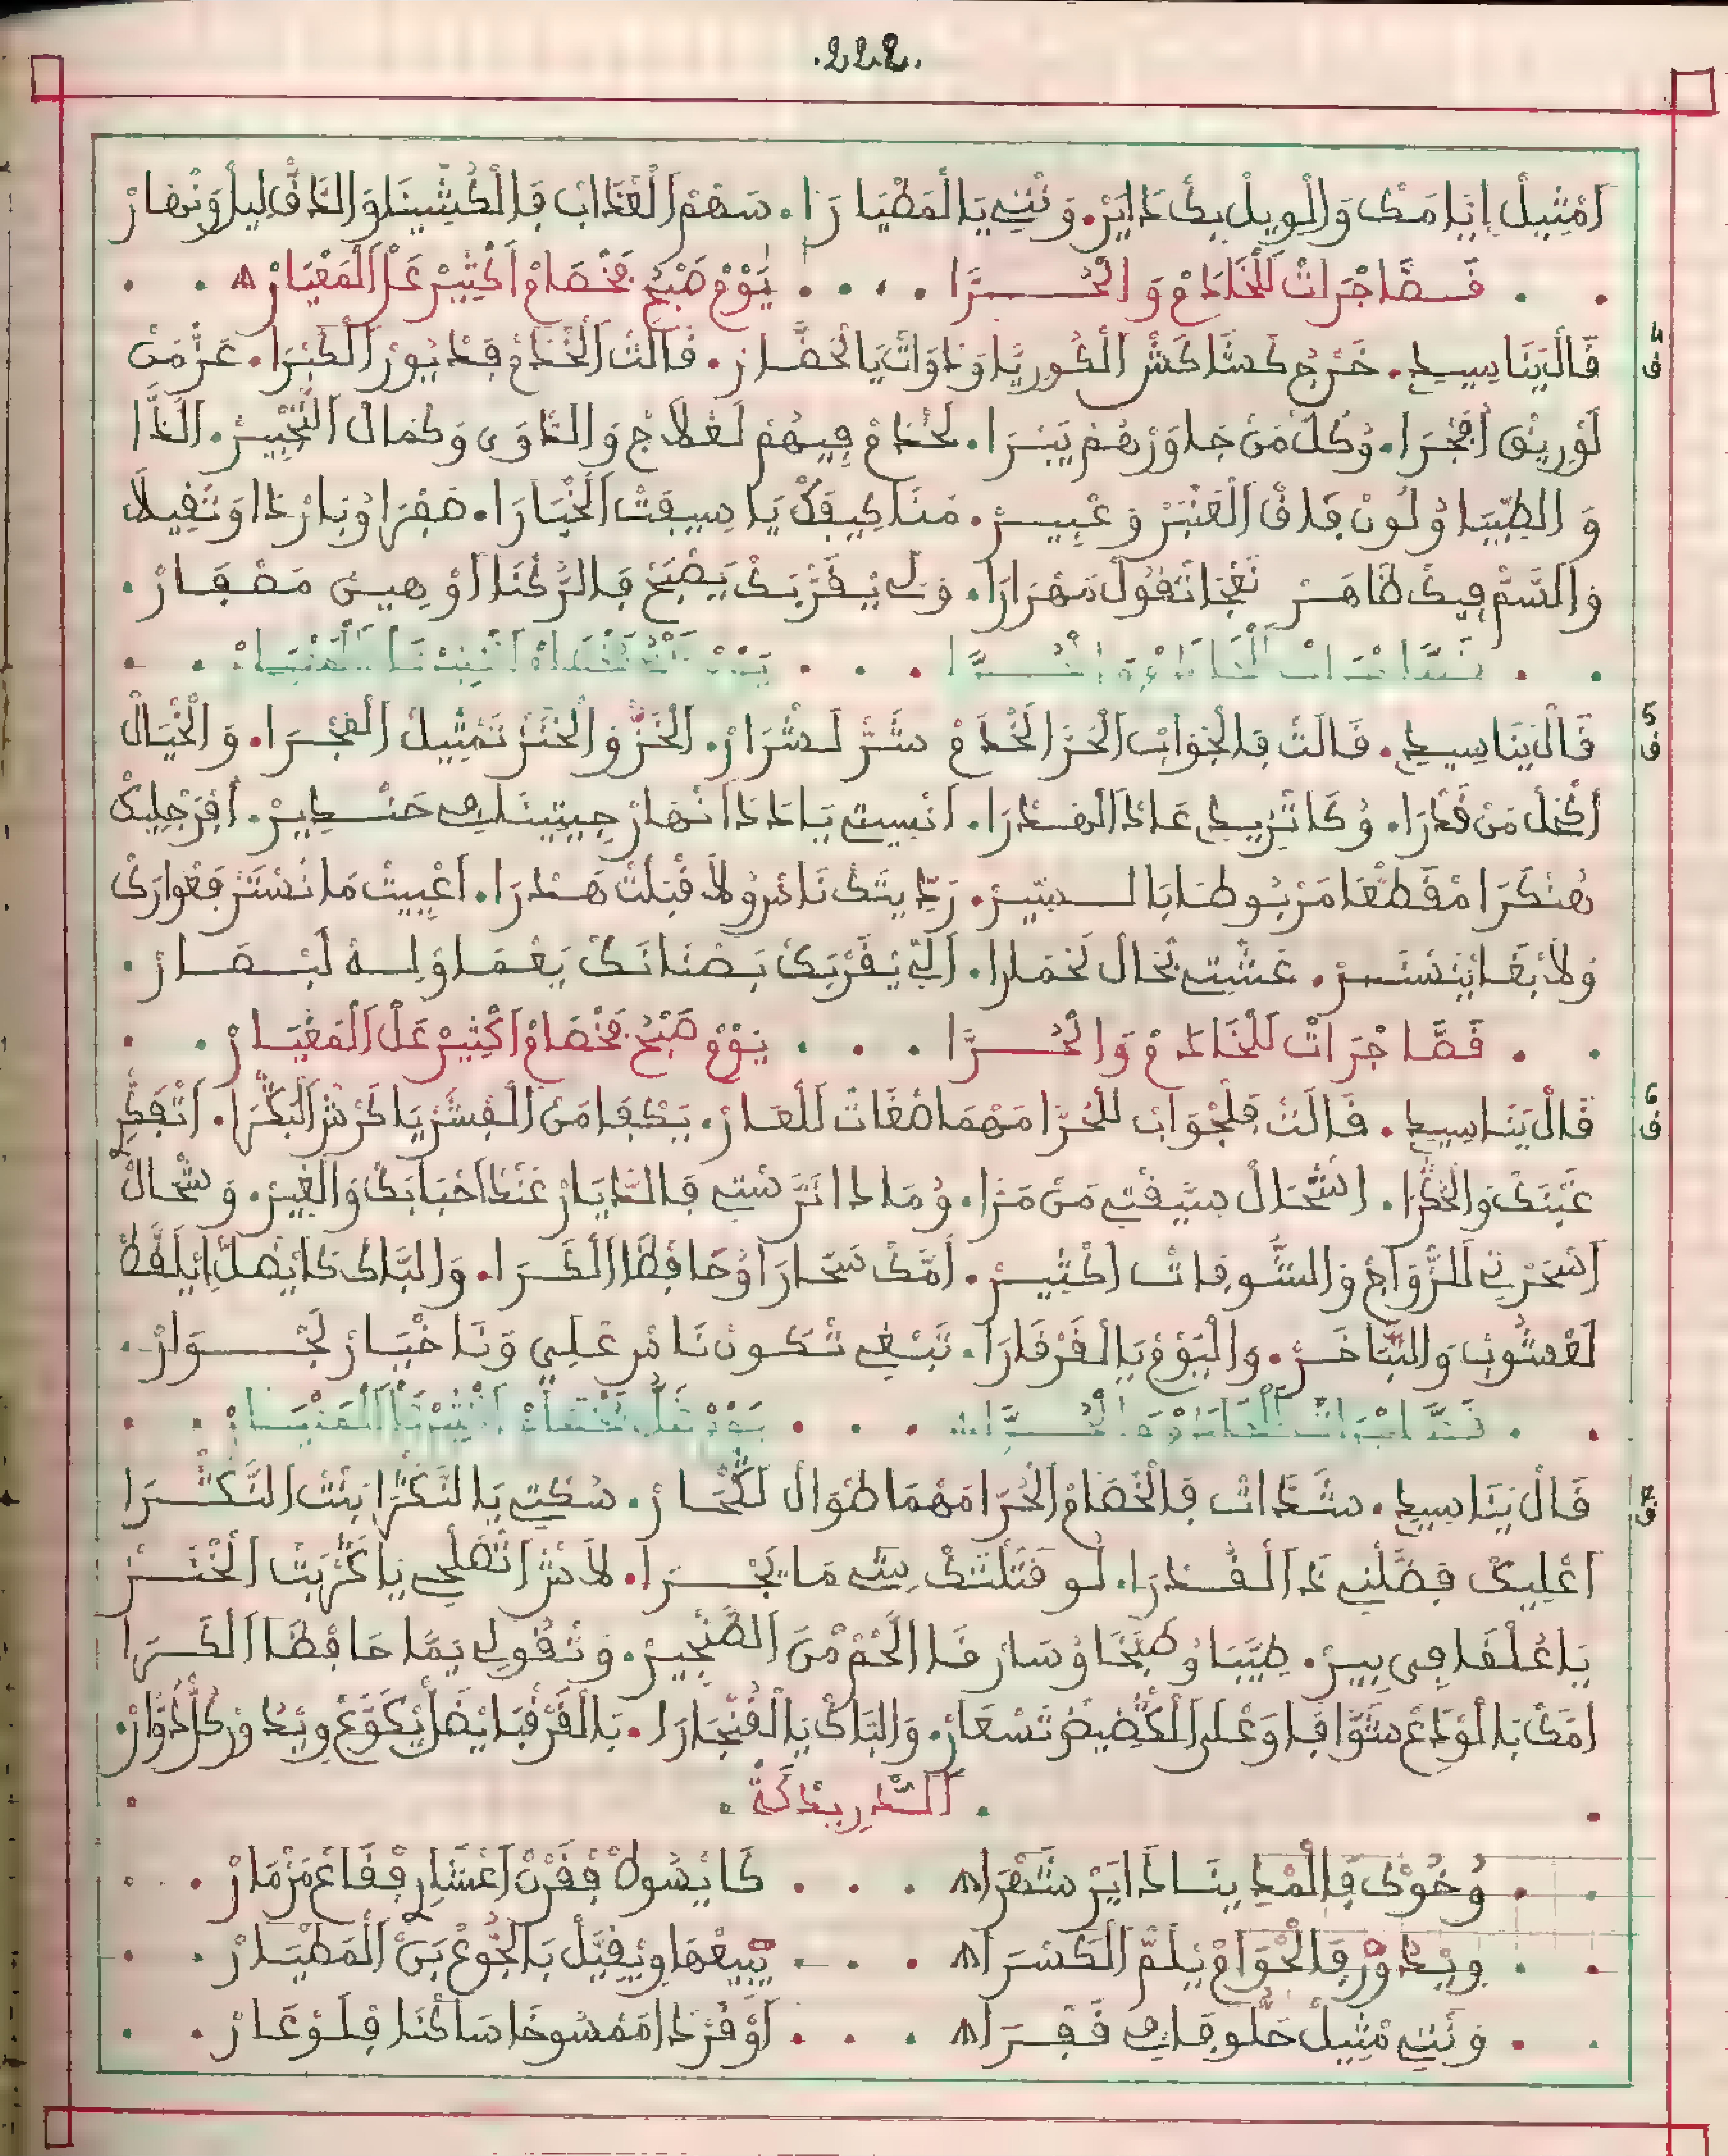 .222.
اَمْثِيلْ اِيَّامَكْ وَالْوِيلْ بِكْ دَايَرْ. وَنْتِ يَا الْمَطْيَارَا. سَهْمْ اَلْعْدَابْ فَالْكْشِينَا وَالدَّقْ لِيلْ وَنْهَارْ
. . فَصَّا جْرَاتْ لَلْخَادَمْ وَالْحُرَّا . . . . يَوْمْ صَبْحُ فَخْصَامْ اَكْثِيرْ عَلْ اَلْمَعْيَارْ . .
4 ف قَالْ يَنَا سِيدِ. خَرْجُ كَشَّاكَشْ اَلْكُورِيَّا وَدْوَاتْ يَا الْحَضَّارْ. قَالَتْ اَلْخَدَمْ قَدْ يُورْ اَلْكَبْرَا. عَرَّمَنْ
لَوْرِيقْ اَفْجْرَا. وُكَلْ مَنْ جَاوَرْهُمْ يَبْرَا. لَخْدَمْ فِيهُمْ لَعْلَاجْ وَالدَّاوَى وَكْمَالْ اَلتَّخْيِيرْ. اَلدَّا
وَالطِّيبَا وُلُونْ فَاقْ اَلْعَنْبَرْ وَعْبِيرْ. مَنَا كِيفَكْ يَا صِيفَتْ اَلْخْبَارَا. صَفْرَا وْبَارْدَا وَثْفِيلَا
وَالسَّمْ فِيكْ ظَاهَرْ نَعْجَا تْقُولْ مَهْرَارَا. وَلِي يْقَرْبَكْ يَصْبَحْ فَالرَّكْنَا اَوْهِيسْ مَصْفَارْ.
. . فَصَّا جْرَاتْ لَلْخَادَمْ وَالْحُرَّا . . . يَوْمْ صَبْحُ فَخْصَامْ اَكْثِيرْ عَلْ اَلْمَعْيَارْ . .
5 ف قَالْ يَنَا سِيدِ. قَالَتْ فَالْجْوَابْ اَلْحُرَّا اَلْخْدَمْ شَرّْ لَشْرَارْ. اَلْخَزُّ وَالْخَنَزْ تَمْثِيلْ اَلْفْجْرَا. وَالْخْيَالْ
اَكْحَلْ مَنْ قَدْرَا. وُكَا تْزِيدِ عَادْ اَلْهَدْرَا. اَنْسِيتِ يَا دَادَا اَنْهَارْ جِيتِينَا فِي حَنْدِيرْ. اَفْرَجْلِيكْ
هَنْكَرَا مْقَطْعَا مَرْبُوطَا بَا السِّيرْ. رَدِّيتَكْ نَاسْ وُلَا قَبْلَتْ هَدْرَا. اَعْيِيتْ مَا نَسْتَرْ فَعْوَارَكْ
وَلَا بْغَا يَنْسْتَرْ. عَشْتِ بْحَالْ لَحْمَارَا. اَلِّي يْقَرْبَكْ بَصْنَانَكْ يَعْمَاوْ لِهْ لَبْصَارْ.
. . فَصَّا جْرَاتْ لَلْخَادَمْ وَالْحُرَّا . . . يَوْمْ صَبْحُ فَخْصَامْ اَكْثِيرْ عَلْ اَلْمَعْيَارْ . .
6 ف قَالْ يَنَا سِيدِ. قَالَتْ فَلْجْوَابْ لَلْحُرَّا مَهْمَا صْغَاتْ لَلْعَارْ. يَكْفَا مَنْ اَلْفْشَرْ يَا كَرْشْ اَلْبَكْرَا. اَتْفَكْرِ
غَبْنَكْ وَالْحْكْرَا. اَشْحَالْ سِيَّفْتِ مَنْ مَرَّا. وُمَادَا تَرَّسْتِ فَالدّْيَارْ عَنْدْ اَحْبَابَكْ وَالْغِيرْ. وَشْحَالْ
اَسْحَرْتِ لَلزّْوَاجْ وَالشُّوفَاتْ اَكْثِيرْ. اَمَّكْ سَحَّارَا وْحَافْظَا اَلْكْرَا. وَالْبَّاكْ كَا يْضَلْ اَيْلَقَّطْ
لَعْشُوبْ وَالتّْبَاخَرْ. وَالْيَوْمْ يَا الْفَرْفَارَا. تَبْغِي تْكُونْ نَاسْ عْلِي وَنَا خْيَارْ لَجْوَارْ.
. . فَصَّا جْرَاتْ لَلْخَادَمْ وَالْحُرَّا . . . يَوْمْ صَبْحُ فَخْصَامْ اَكْثِيرْ عَلْ اَلْمَعْيَارْ . .
7 ف قَالْ يَنَا سِيدِ. شَدَّاتْ فَالْخْصَامْ اَلْحُرَّا مَهْمَا طْوَالْ لَحْجَارْ. سُكْتِي يَا النَّكْرَا بَنْتْ اَلنَّكْرَا
اَعْلِيكْ فَضَّلْنِي دَ اَلْقُدْرَا. لُو قْتَلْتَكْ سِي مَا يَجْرَا. لَاشْ اَتْصَلْحِي يَا كَرْبَتْ اَلْخْنَزْ
يَا عُلْفَا فِي بِيرْ. طِيَّبَا وُطَبْخَا وْسَارْقَا الْحَمْ مْنَ اَلطَّنْجِيرْ. وَتْقُولِي يَمَّا حَافْظَا اَلْكْرَا
اَمَّكْ بَالْوْدَعْ شَوَّافَا وَعْلَى اَلْكَضِيضْ تَسْعَارْ. وَالْبَاكْ يَا الْفْنْجَارَا. بَالْقَرْقْبَا يْضَلْ يْكَوَّعْ وِيْدُورْ كَلْ دْوَارْ.
. اَلدّْرِيدْكَةْ .
. . وُخُوكْ فَالْمْدِينَا دَايَرْ شَهْرَا . . . كَا يْسُولْ فَقْرَنْ اَعْشَارْ فْقَاعْ مَزْمَارْ . .
. . وِيْدُورْ فَالْحْوَامْ يْلَمّْ اَلْكَسْرَا . . . يْبِيعْهَا وِيْقِيَّلْ بَالْجُوعْ بَنْ اَلْمَطْيَارْ . .
. . وَنْتِ مْثِيلْ حَلُّوفَا فِي قَفْرَا . . . اَوْقَرْدَا مَمْسُوخَا سَاكْنَا فْلَوْعَارْ . .